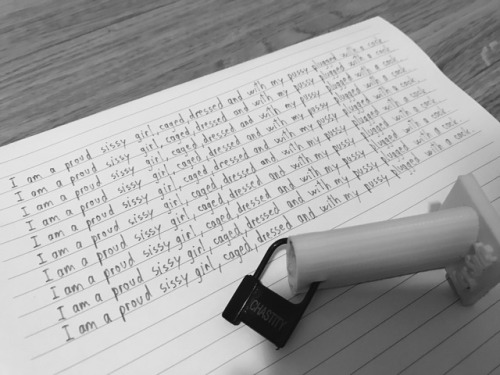 I am a proud sissy girl, caged, dressed and with my pussy plugged with a cock.
I am a proud sissy girl, caged, dressed and with my pussy plugged with a cock.
I am a proud sissy girl, caged, dressed and with my pussy plugged with a cock.
I am a proud sissy girl, caged, dressed and with my pussy plugged with a cock.
I am a proud sissy girl, caged, dressed and with my pussy plugged with a cock.
I am a proud sissy girl, caged, dressed and with my pussy plugged with a cock.
I am a proud sissy girl, caged, dressed and with my pussy plugged with a cock.
I am a proud sissy girl, caged, dressed and with my pussy plugged with a cock.
I am a proud sissy girl, caged, dressed and with my pussy plugged with a cock.
I am a proud sissy girl, caged, dressed and with my pussy plugged with a cock.
CHASTITY